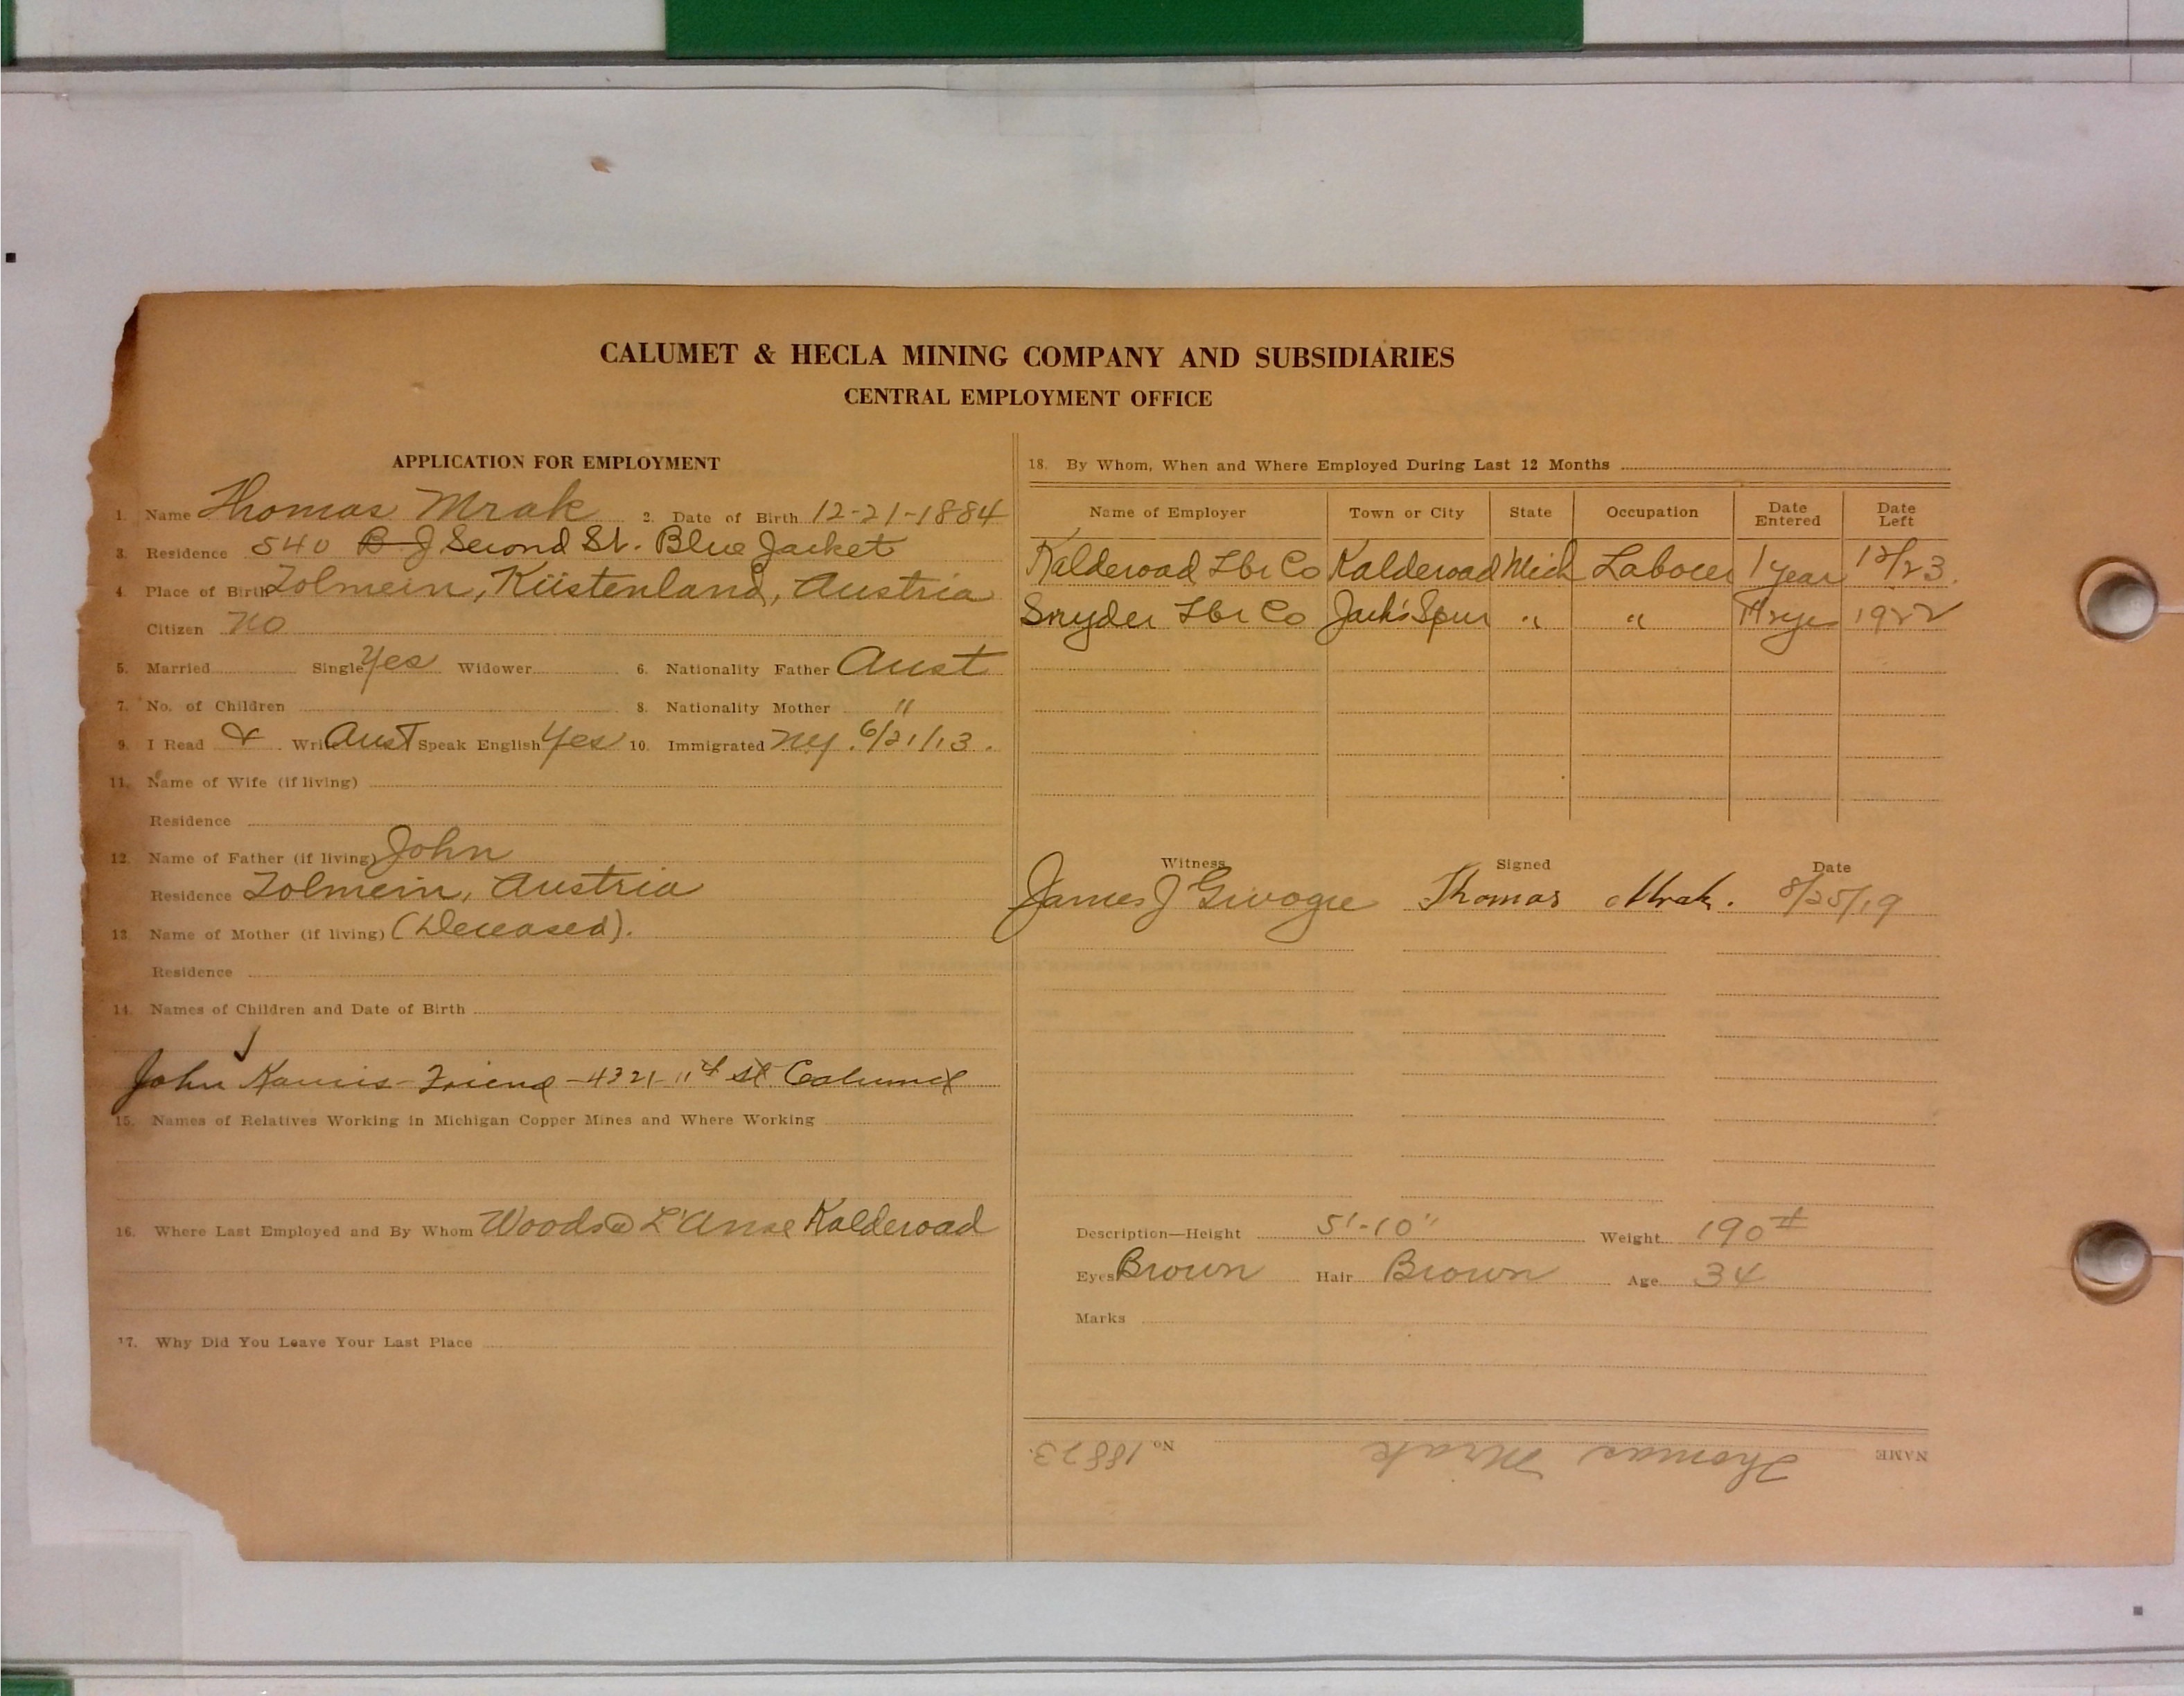 CALUMET & HECLA MINING COMPANY AND SUBSIDIARIES
CENTRAL EMPLOYMENT OFFICE
APPLICATION FOR EMPLOYMENT
1. Name Thomas Mrak 2. Date of Birth 12-21-1884
3. Residence 540 B J Second St. Blue Jacket
4. Place of Birth Tolmein, Küstenland, Austria
Citizen No
5. Married Single Yes Widower 6. Nationality Father Aust
7. No. of Children 8. Nationality Mother "
9. I Read & Write Aust Speak English Yes 10. Immigrated NY. 6/21/13.
11. Name of Wife (if living)
Residence
12. Name of Father (if living) John
Residence Tolmein, Austria
13. Name of Mother (if living) (Deceased).
Residence
14. Names of Children and Date of Birth
John - Friend - 4321 - 11th St Calumet
15. Names of Relatives Working in Michigan Copper Mines and Where Working
16. Where Last Employed and By Whom Woods @ L'Anse Kalderoad
17. Why Did You Leave Your Last Place
18. By Whom, When and Where Employed During Last 12 Months
Name of Employer Town or City State Occupation Date Entered Date Left
Kalderoad Lbr Co Kalderoad Mich Laborer 1 year 12/23.
Snyder Lbr Co Jack's Spur " " 1922
Witness Signed Date
James J Thomas Mrak. 8/25/19
Description—Height 5'-10" Weight 190#
Eyes Brown Hair Brown Age 34
Marks
NAME Thomas Mrak No 18823.